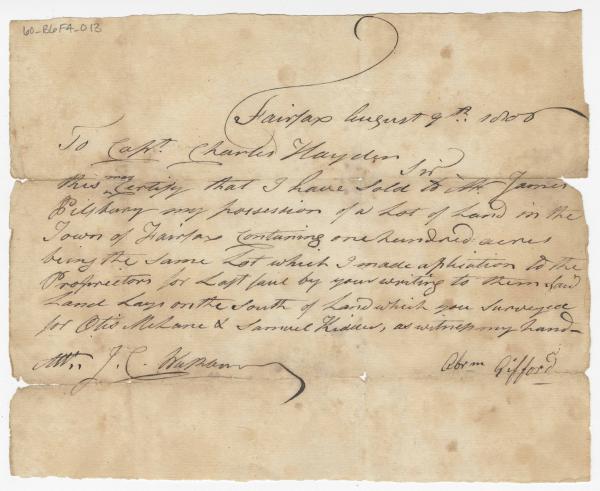 60-B6F4-013
Fairfax August 9th. 1800
To Capt. Charles Hayden
Sir
this may Certify that I have Sold to Mr. James
Pilsbury my possession of a Lot of Land in the
Town of Fairfax Containing one hundred acres
being the Same Lot which I made aplication to the
Proprietors for Last faul by your writing to them Said
Land Lays on the South of Land which you Surveyed
for Otis McLane & Samuel Kidder, as witness my hand
Attn. J. C.
Abrm Gifford